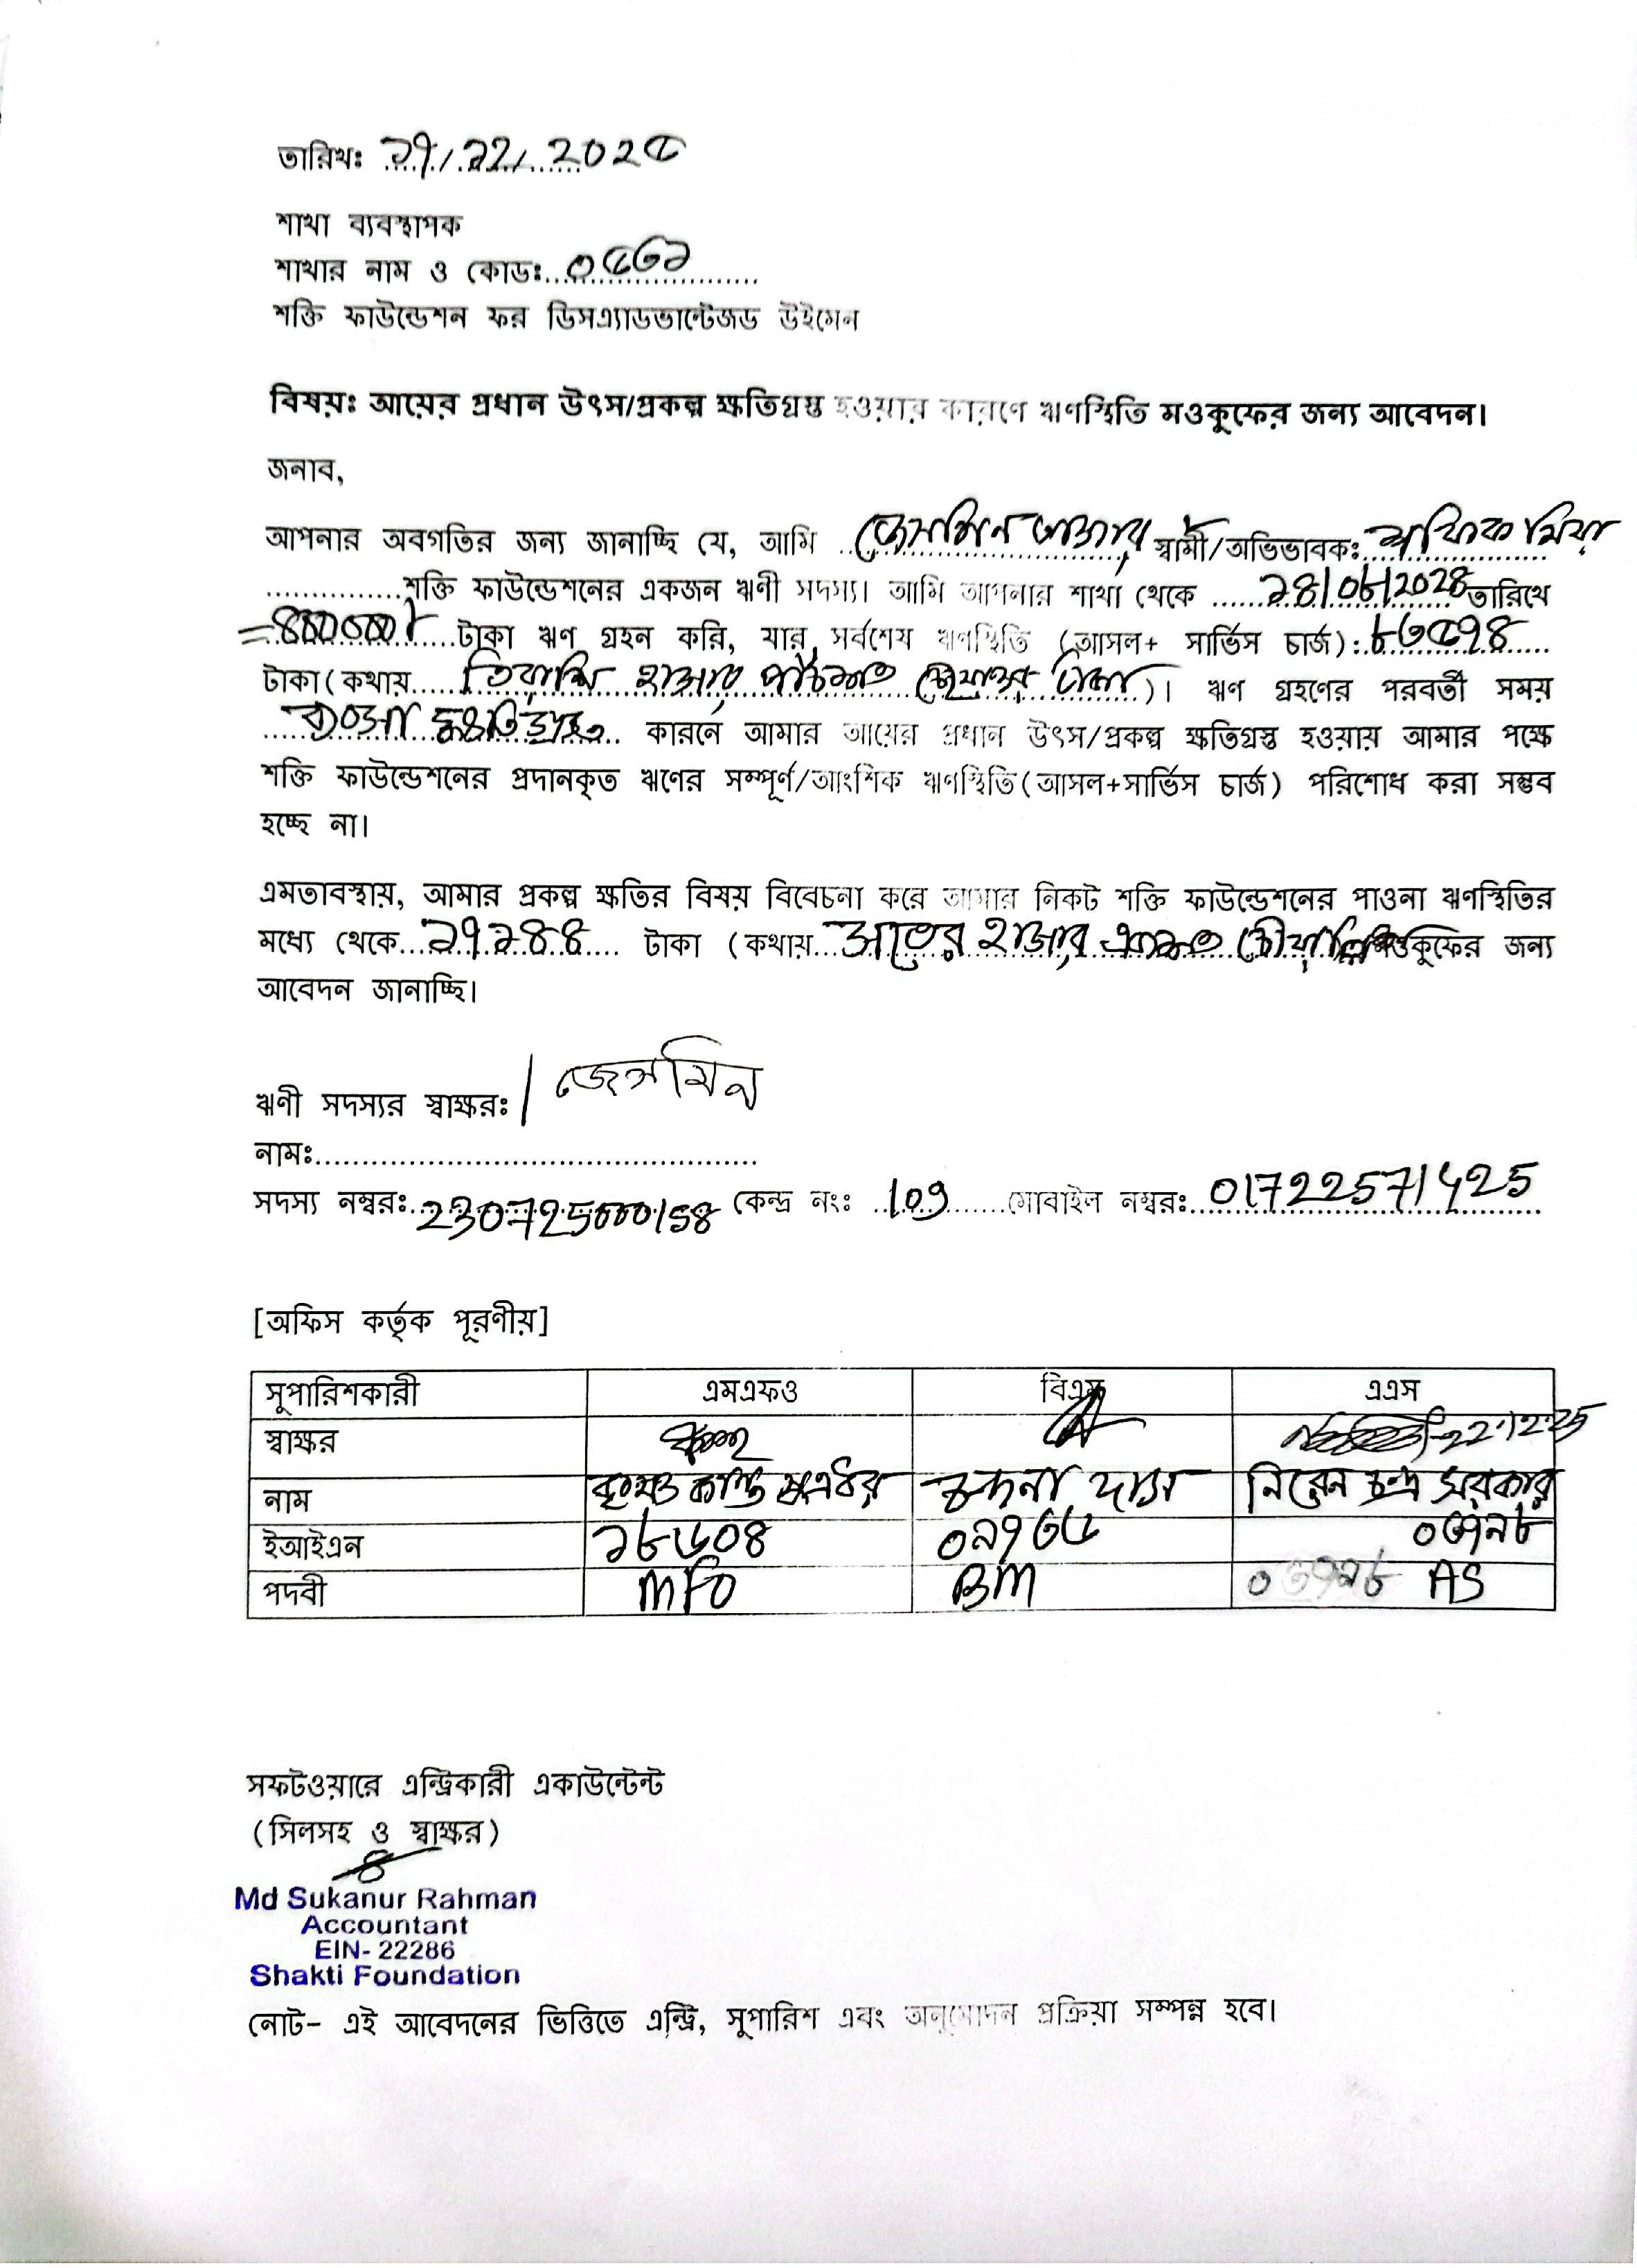 তারিখঃ ১৭/১২/২০২৫
শাখা ব্যবস্থাপক
শাখার নাম ও কোডঃ ০৫৬১
শক্তি ফাউন্ডেশন ফর ডিসএ্যাডভান্টেজড উইমেন
বিষয়ঃ আয়ের প্রধান উৎস/প্রকল্প ক্ষতিগ্রস্ত হওয়ার কারণে ঋণস্থিতি মওকুফের জন্য আবেদন।
জনাব,
আপনার অবগতির জন্য জানাচ্ছি যে, আমি জেসমিন আক্তার স্বামী/অভিভাবক: মিয়া
শক্তি ফাউন্ডেশনের একজন ঋণী সদস্য। আমি আপনার শাখা থেকে ২৪/০৮/২০২৪ তারিখে
টাকা ঋণ গ্রহন করি, যার সর্বশেষ ঋণস্থিতি (আসল+ সার্ভিস চার্জ): ৮৩৫৭৪
টাকা(কথায় তিরাশি হাজার পাঁচশত চুয়াত্তর টাকা)। ঋণ গ্রহণের পরবর্তী সময়
ব্যবসা ক্ষতিগ্রস্ত কারনে আমার আয়ের প্রধান উৎস/প্রকল্প ক্ষতিগ্রস্ত হওয়ায় আমার পক্ষে
শক্তি ফাউন্ডেশনের প্রদানকৃত ঋণের সম্পূর্ণ/আংশিক ঋণস্থিতি(আসল+সার্ভিস চার্জ) পরিশোধ করা সম্ভব
হচ্ছে না।
এমতাবস্থায়, আমার প্রকল্প ক্ষতির বিষয় বিবেচনা করে আমার নিকট শক্তি ফাউন্ডেশনের পাওনা ঋণস্থিতির
মধ্যে থেকে ১৭১৪৪ টাকা (কথায় সতের হাজার একশত চৌয়াল্লিশ মওকুফের জন্য
আবেদন জানাচ্ছি।
ঋণী সদস্যর স্বাক্ষরঃ জেসমিন
নামঃ
সদস্য নম্বরঃ 230725000158 কেন্দ্র নংঃ 109 মোবাইল নম্বরঃ 01722571425
[অফিস কর্তৃক পূরণীয়]
সুপারিশকারী এমএফও বিএম এএস
স্বাক্ষর 22.12.25
নাম কৃষ্ণ কান্ত সূত্রধর দাস নিরেন চন্দ্র সরকার
ইআইএন ১৮৬০৪ ০৯৭৩৫ ০৩৭৯৮
পদবী MFO BM ০৩৭৯৮ AS
সফটওয়ারে এন্ট্রিকারী একাউন্টেন্ট
(সিলসহ ও স্বাক্ষর)
Md Sukanur Rahman
Accountant
EIN- 22286
Shakti Foundation
নোট- এই আবেদনের ভিত্তিতে এন্ট্রি, সুপারিশ এবং অনুমোদন প্রক্রিয়া সম্পন্ন হবে।